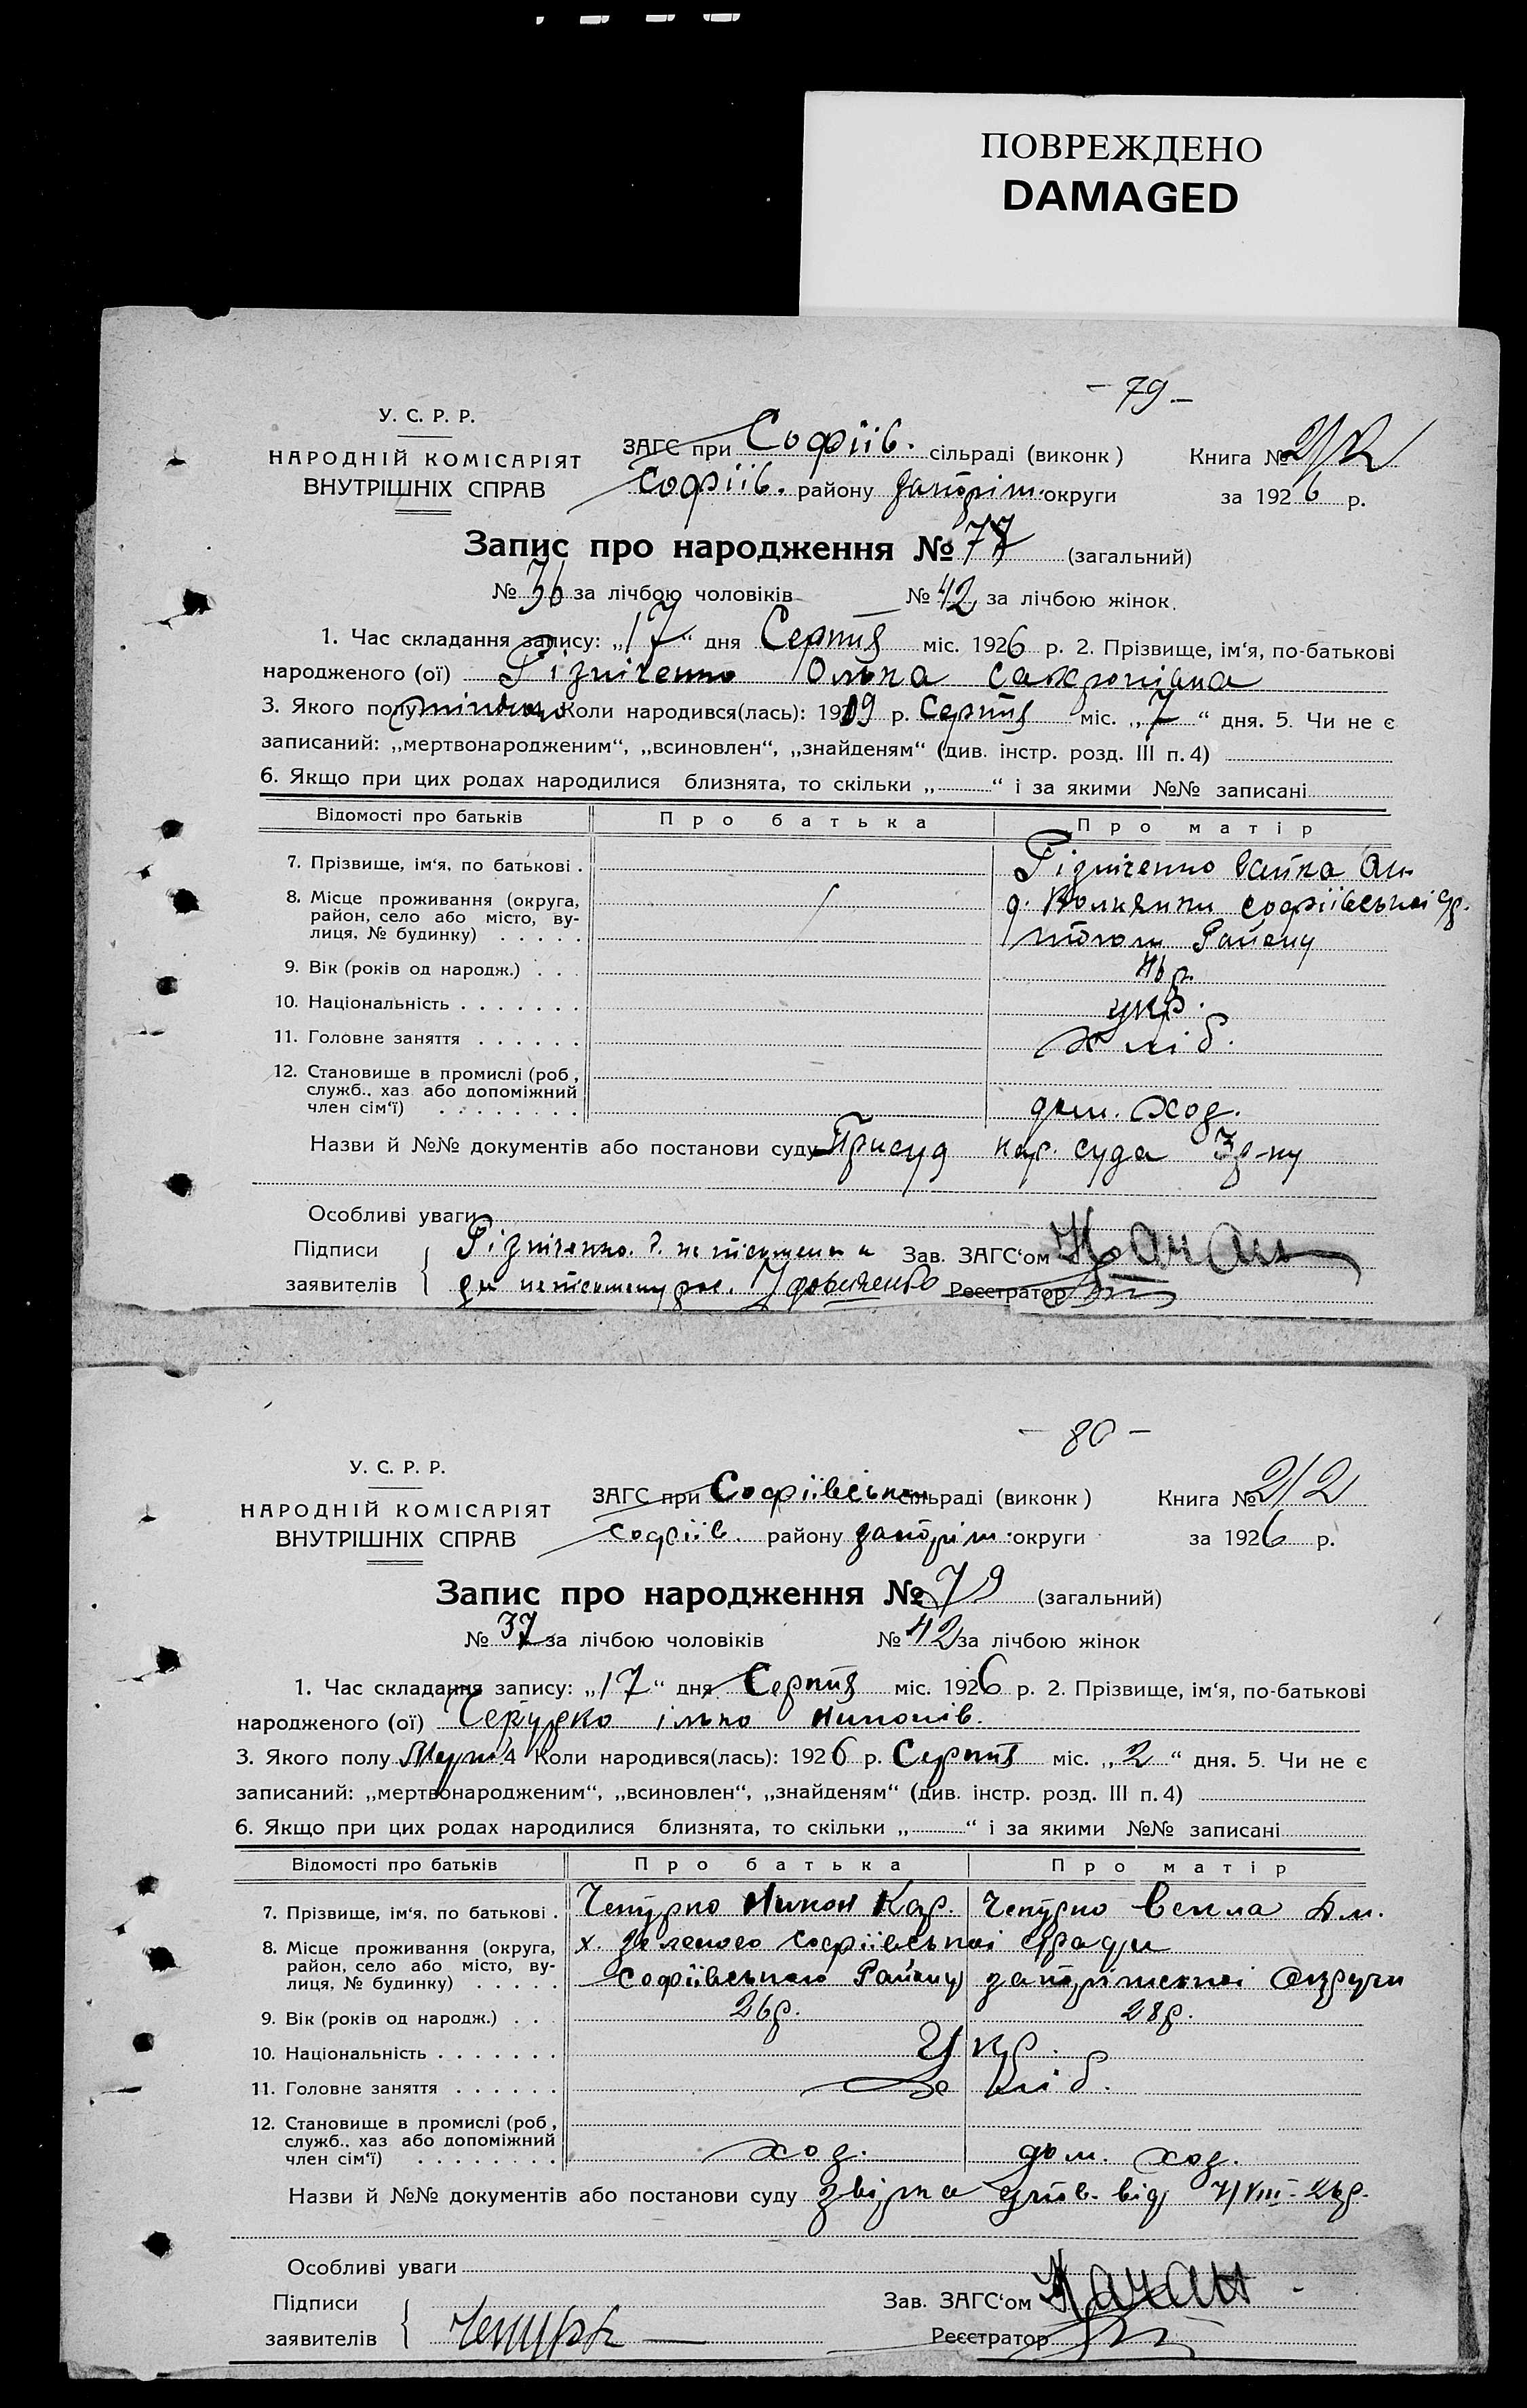 ПОВРЕЖДЕНО
DAMAGED
— 79 —
У. С. Р. Р.
НАРОДНІЙ КОМІСАРІЯТ
ВНУТРІШНІХ СПРАВ
ЗАГС при Софіїв. сільраді (виконк)
Софіїв. району запоріж. округи
Книга № 2/2
за 1926 р.
Запис про народження № 78 (загальний)
№ 36 за лічбою чоловіків № 42 за лічбою жінок.
1. Час складання запису: „17“ дня Серпня міс. 1926 р. 2. Прізвище, ім‘я, по-батькові
народженого (ої) Різніченко Олька
3. Якого полу жіночо Коли народився(лась): 1919 р. Серпня міс. „7“ дня. 5. Чи не є
записаний: „мертвонародженим“, „всиновлен“, „знайденям“ (див. інстр. розд. III п. 4)
6. Якщо при цих родах народилися близнята, то скільки „ “ і за якими №№ записані
Відомості про батьків Про батька Про матір
7. Прізвище, ім‘я, по батькові . Різніченко
8. Місце проживання (округа, район, село або місто, вулиця, № будинку) . . . . . софіївської
Району
9. Вік (років од народж.) . . . 46 р.
10. Національність . . . . . . . укр.
11. Головне заняття . . . . . . хліб.
12. Становище в промислі (роб, служб.. хаз або допоміжний член сім‘ї) . . . . . . . . дом. ход.
Назви й №№ документів або постанови суду Присуд нар. суда 3 р-ну
Особливі уваги
Підписи заявителів Різніченко. В. не письменна
за неписьмену рос. Удовиченко
Зав. ЗАГС‘ом Качан
Реєстратор
— 80 —
У. С. Р. Р.
НАРОДНІЙ КОМІСАРІЯТ
ВНУТРІШНІХ СПРАВ
ЗАГС при Софіївськои сільраді (виконк)
софіїв. району запоріж. округи
Книга № 2/2
за 1926 р.
Запис про народження № 79 (загальний)
№ 37 за лічбою чоловіків № 42 за лічбою жінок
1. Час складання запису: „17“ дня Серпня міс. 1926 р. 2. Прізвище, ім‘я, по-батькові
народженого (ої) ілько никонів.
3. Якого полу Муж 4 Коли народився(лась): 1926 р. Серпня міс. „2“ дня. 5. Чи не є
записаний: „мертвонародженим“, „всиновлен“, „знайденям“ (див. інстр. розд. III п. 4)
6. Якщо при цих родах народилися близнята, то скільки „ “ і за якими №№ записані
Відомості про батьків Про батька Про матір
7. Прізвище, ім‘я, по батькові . Чепурко Никон Кар. Чепурко Векла Дм.
8. Місце проживання (округа, район, село або місто, вулиця, № будинку) . . . . . х. Зеленого софіївської с/ради
Софіївського Району запоріжської округи
9. Вік (років од народж.) . . . 26 р. 28 р.
10. Національність . . . . . . . Укр.
11. Головне заняття . . . . . . хліб.
12. Становище в промислі (роб, служб.. хаз або допоміжний член сім‘ї) . . . . . . . . ход. дом. ход.
Назви й №№ документів або постанови суду від 7/VIII-26р.
Особливі уваги
Підписи заявителів Чепурк
Зав. ЗАГС‘ом Качан
Реєстратор